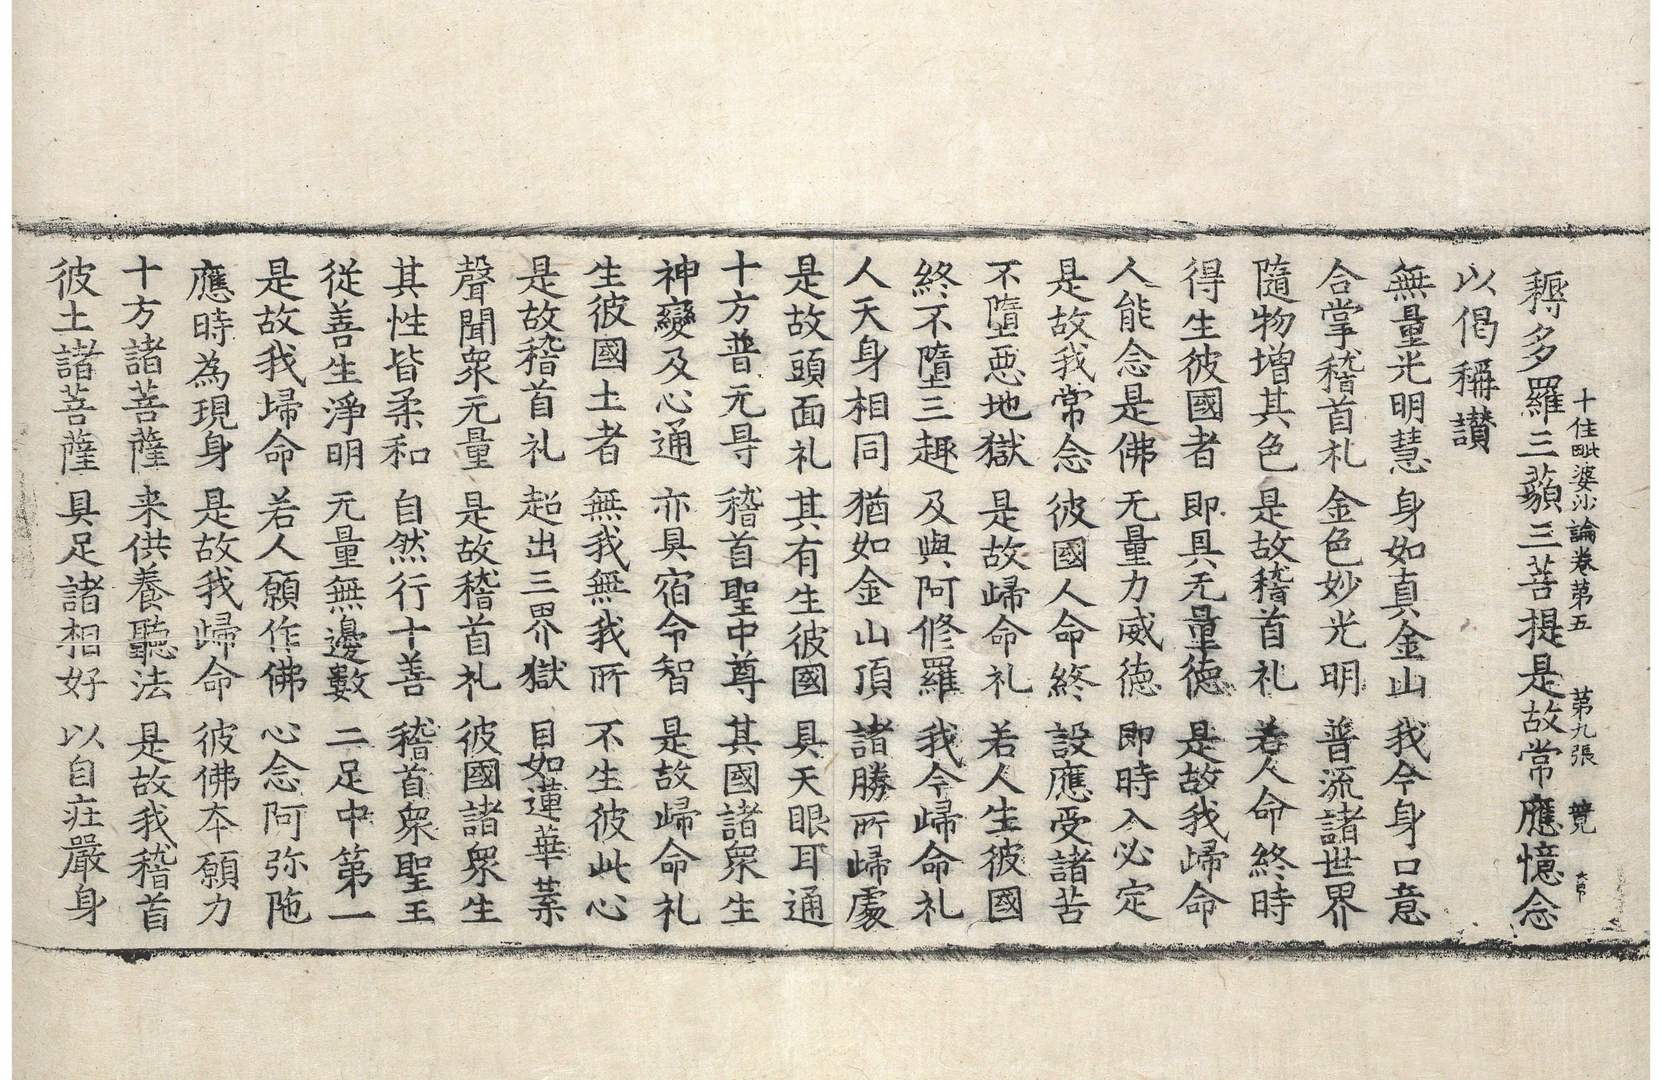 十住毗婆沙論卷第五　第九張　競　大章
耨多羅三藐三菩提是故常應憶念
以偈稱讃
無量光明慧　身如真金山　我今身口意
合掌稽首礼　金色妙光明　普流諸世界
隨物增其色　是故稽首礼　若人命終時
得生彼國者　即具无量德　是故我歸命
人能念是佛　无量力威德　即時入必定
是故我常念　彼國人命終　設應受諸苦
不墮惡地獄　是故歸命礼　若人生彼國
終不墮三趣　及與阿修羅　我今歸命礼
人天身相同　猶如金山頂　諸勝所歸處
是故頭面礼　其有生彼國　具天眼耳通
十方普无㝵　稽首聖中尊　其國諸衆生
神變及心通　亦具宿命智　是故歸命礼
生彼國土者　無我無我所　不生彼此心
是故稽首礼　超出三界獄　目如蓮華葉
聲聞衆无量　是故稽首礼　彼國諸衆生
其性皆柔和　自然行十善　稽首衆聖王
従善生淨明　无量無邊數　二足中第一
是故我歸命　若人願作佛　心念阿弥陁
應時為現身　是故我歸命　彼佛夲願力
十方諸菩薩　来供養聽法　是故我稽首
彼土諸菩薩　具足諸相好　以自莊嚴身